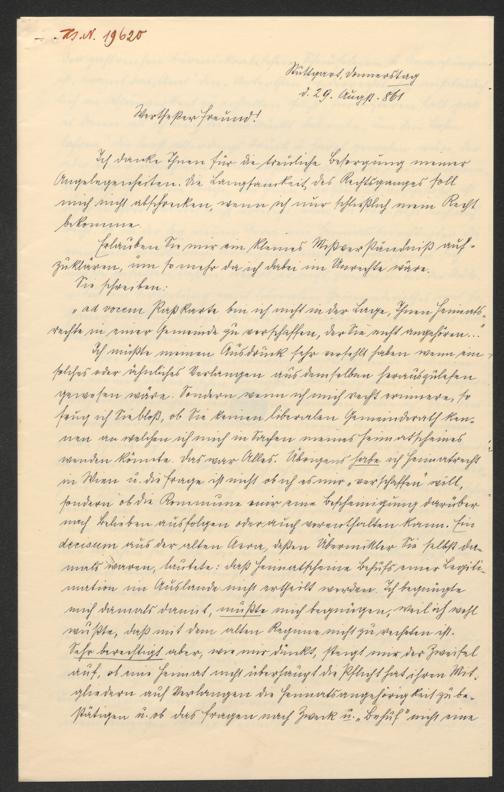 H.I.N. 19620
Stuttgart, Donnerstag
d. 29. August. 861
Werthester Freund!
Ich danke Ihnen für die treuliche Besorgung meiner
Angelegenheiten. Die Langsamkeit des Rechtsganges soll
mich nicht abschrecken, wenn ich nur schließlich mein Recht
bekomme.
Erlauben Sie mir ein kleines Mißverständniß auf-
zuklären, um so mehr da ich dabei im Unrechte wäre.
Sie schreiben:
„ad vocem Paßkarte bin ich nicht in der Lage, Ihnen Heimats-
rechte in einer Gemeinde zu verschaffen, der Sie nicht angehören..."
Ich müßte meinen Ausdruck sehr verfehlt haben wenn ein
solches oder ähnliches Verlangen aus demselben herauszulesen
gewesen wäre. Sondern wenn ich mich recht erinnere, so
frug ich Sie bloß, ob Sie keinen liberalen Gemeinderath ken-
nen an welchen ich mich in Sachen meines Heimatscheines
wenden könnte. Das war Alles. Übrigens habe ich Heimatrecht
in Wien u. die Frage ist nicht ob ich es mir „verschaffen" will,
sondern ob die Kommune mir eine Bescheinigung darüber
nach Belieben ausfolgen oder auch vorenthalten kann. Ein
decisum aus der alten Aera, dessen Übermittler Sie selbst da-
mals waren, lautete: daß Heimatscheine behufs einer Legiti-
mation im Auslande nicht ertheilt werden. Ich begnügte
mich damals damit, mußte mich begnügen, weil ich wohl
wußte, daß mit dem alten Regime nicht zu rechten ist.
Sehr berechtigt aber, wie mir dünkt, steigt mir der Zweifel
auf, ob eine Heimat nicht überhaupt die Pflicht hat ihren Mit-
gliedern auf Verlangen die Heimatsangehörigkeit zu be-
stätigen u. ob das Fragen nach Zweck u. „Behuf" nicht eine